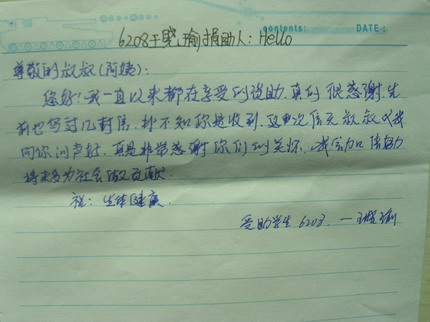 contents: DATE:
6208王晓瑜捐助人: Hello
尊敬的叔叔(阿姨):
您好!我一直以来都在享受的资助,真的很感谢,先
前也写过几封信,抄不知你是收到,这再次信叔叔
向你问声好,真是非常感谢你们的关怀,我会加倍努力
将来多为社会做贡献.
祝:身体健康.
受助学生 6208. 一王晓瑜